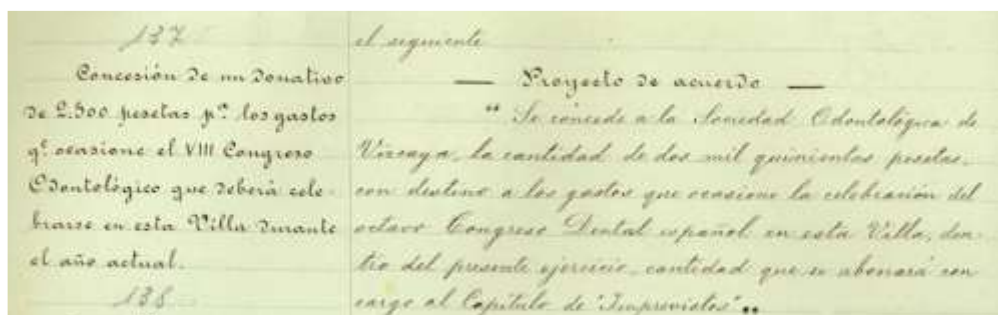 137
Concesión de un donativo
de 2.500 pesetas pª. los gastos
qᵉ. ocasione el VIII Congreso
Odontológico que deberá cele-
brarse en esta Villa durante
el año actual.
138
el siguiente
— Proyecto de acuerdo —
"Se concede a la Sociedad Odontológica de
Vizcaya, la cantidad de dos mil quinientas pesetas,
con destino a los gastos que ocasione la celebración del
octavo Congreso Dental español en esta Villa, den-
tro del presente ejercicio, cantidad que se abonará con
cargo al Capítulo de "Imprevistos""